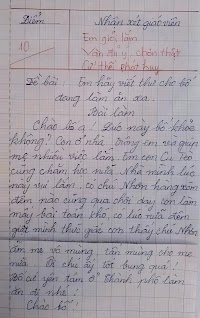 Điểm Nhận xét giáo viên
10 Em giỏi lắm!
Văn đủ ý, chân thật
Cụ thể, khá hay
Đề bài: Em hãy viết thư cho bố
đang làm ăn xa.
Bài làm
Chào bố ạ! Lúc này bố khỏe
không? Con ở nhà, trông em và giúp
mẹ nhiều việc lắm, em con Cu Tèo
cũng chăm học nữa. Nhà mình lúc
này vui lắm, có chú Nhân hàng xóm
đêm nào cũng qua chơi, dạy con làm
mấy bài toán khó, có lúc nửa đêm
giật mình thức giấc con thấy chú Nhân
ôm mẹ vỗ mừng, tân mừng cho mẹ
nữa. Ôi chú ấy tốt bụng quá!
Bố cứ yên tâm ở thành phố làm
ăn đi nhé!
Chào bố!